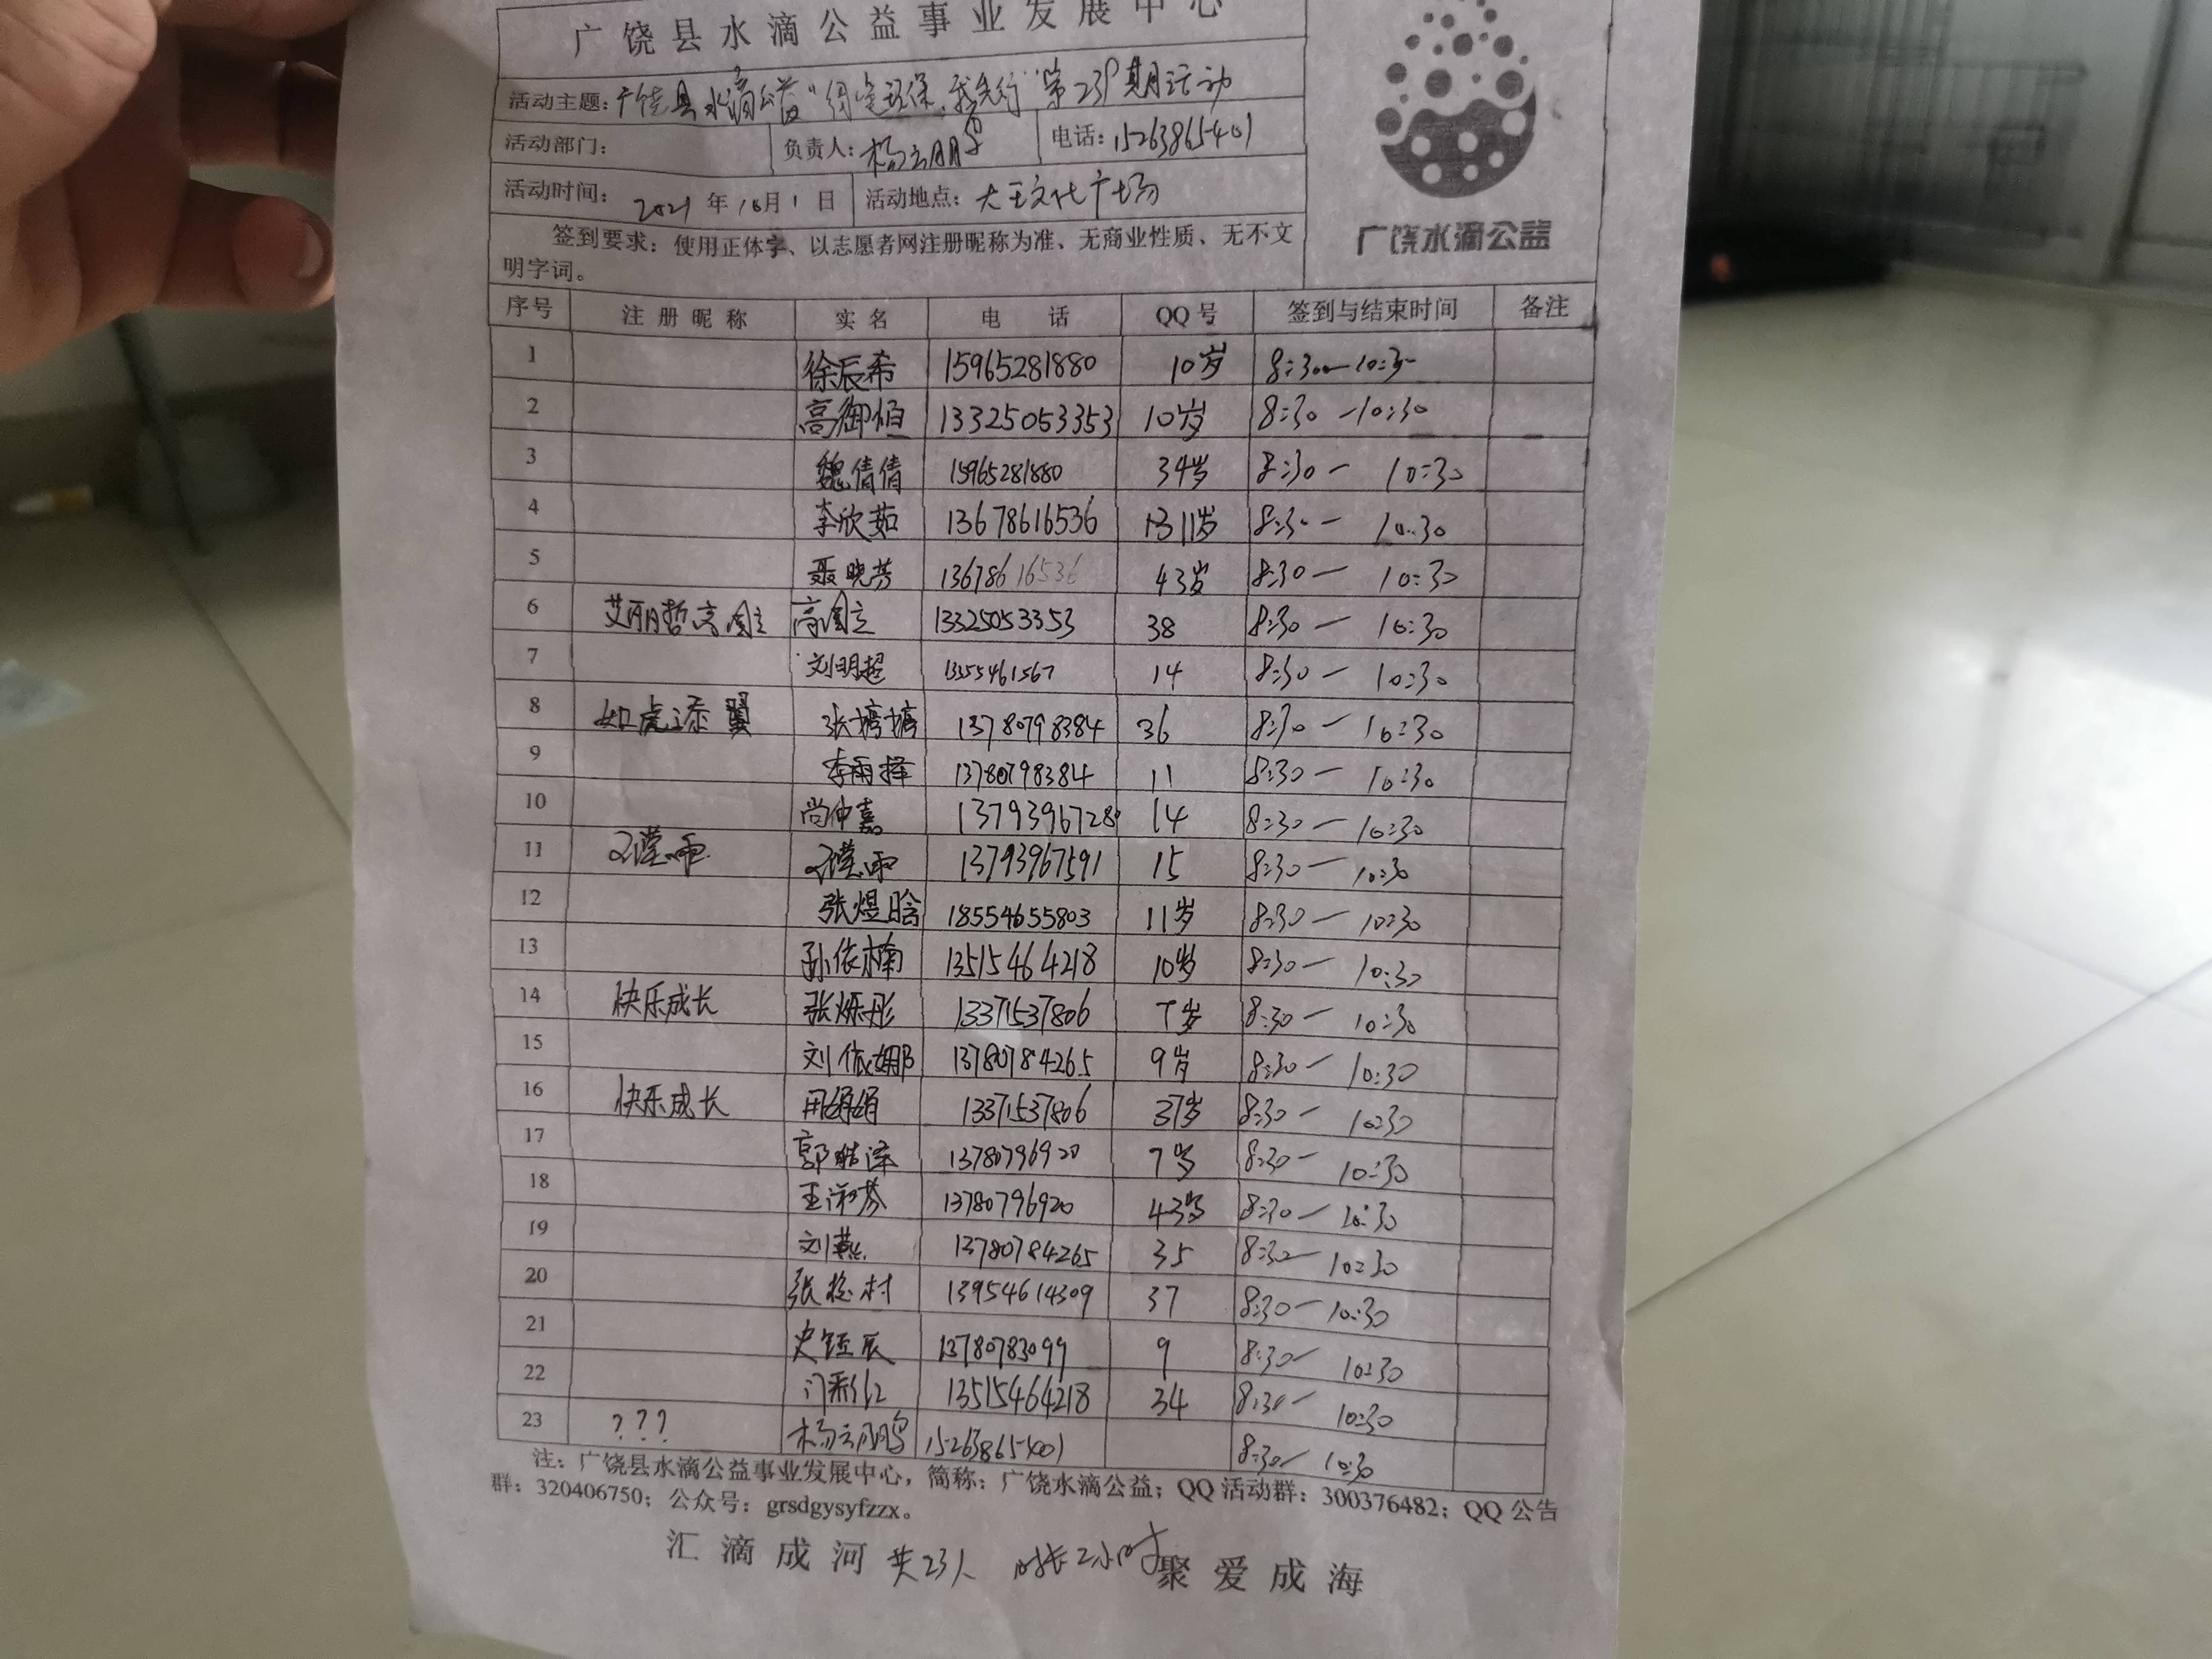 广饶县水滴公益事业发展中心
活动主题: 广饶县水滴公益"绿色环保,我先行"第239期活动
活动部门: 负责人: 杨云鹏 电话: 15263865401
活动时间: 2021年10月1日 活动地点: 大王文化广场
签到要求: 使用正体字、以志愿者网注册昵称为准、无商业性质、无不文
明字词。
广饶水滴公益
序号 注册昵称 实名 电话 QQ号 签到与结束时间 备注
1 徐辰希 15965281880 10岁 8:30—10:30
2 高御恒 13325053353 10岁 8:30—10:30
3 魏倩倩 15965281880 34岁 8:30— 10:30
4 李欣茹 13678616536 11岁 8:30— 10:30
5 聂晓芳 13678616536 43岁 8:30— 10:30
6 艾丽哲高国立 高国立 13325053353 38 8:30— 10:30
7 刘明超 13555461567 14 8:30— 10:30
8 如虎添翼 张塘塘 13780798384 36 8:30— 10:30
9 李雨择 13780798384 11 8:30— 10:30
10 尚仲嘉 13793967280 14 8:30— 10:30
11 13793967591 15 8:30— 10:30
12 张煜晗 18554655803 11岁 8:30— 10:30
13 孙依楠 13515464218 10岁 8:30— 10:30
14 快乐成长 张烁彤 13371537806 7岁 8:30— 10:30
15 刘依娜 13780784265 9岁 8:30— 10:30
16 快乐成长 田娟娟 13371537806 37岁 8:30— 10:30
17 郭皓泽 13780796920 7岁 8:30— 10:30
18 王淑芬 13780796920 43岁 8:30— 10:30
19 刘燕 13780784265 35 8:30— 10:30
20 张松村 13954614309 37 8:30— 10:30
21 史钰辰 13780783099 9 8:30— 10:30
22 门彩红 13515464218 34 8:30— 10:30
23 ??? 杨云鹏 15263865401 8:30— 10:30
注: 广饶县水滴公益事业发展中心, 简称: 广饶水滴公益; QQ活动群: 300376482; QQ公告
群: 320406750; 公众号: grsdgysyfzzx。
汇滴成河 共23人 时长2小时 聚爱成海